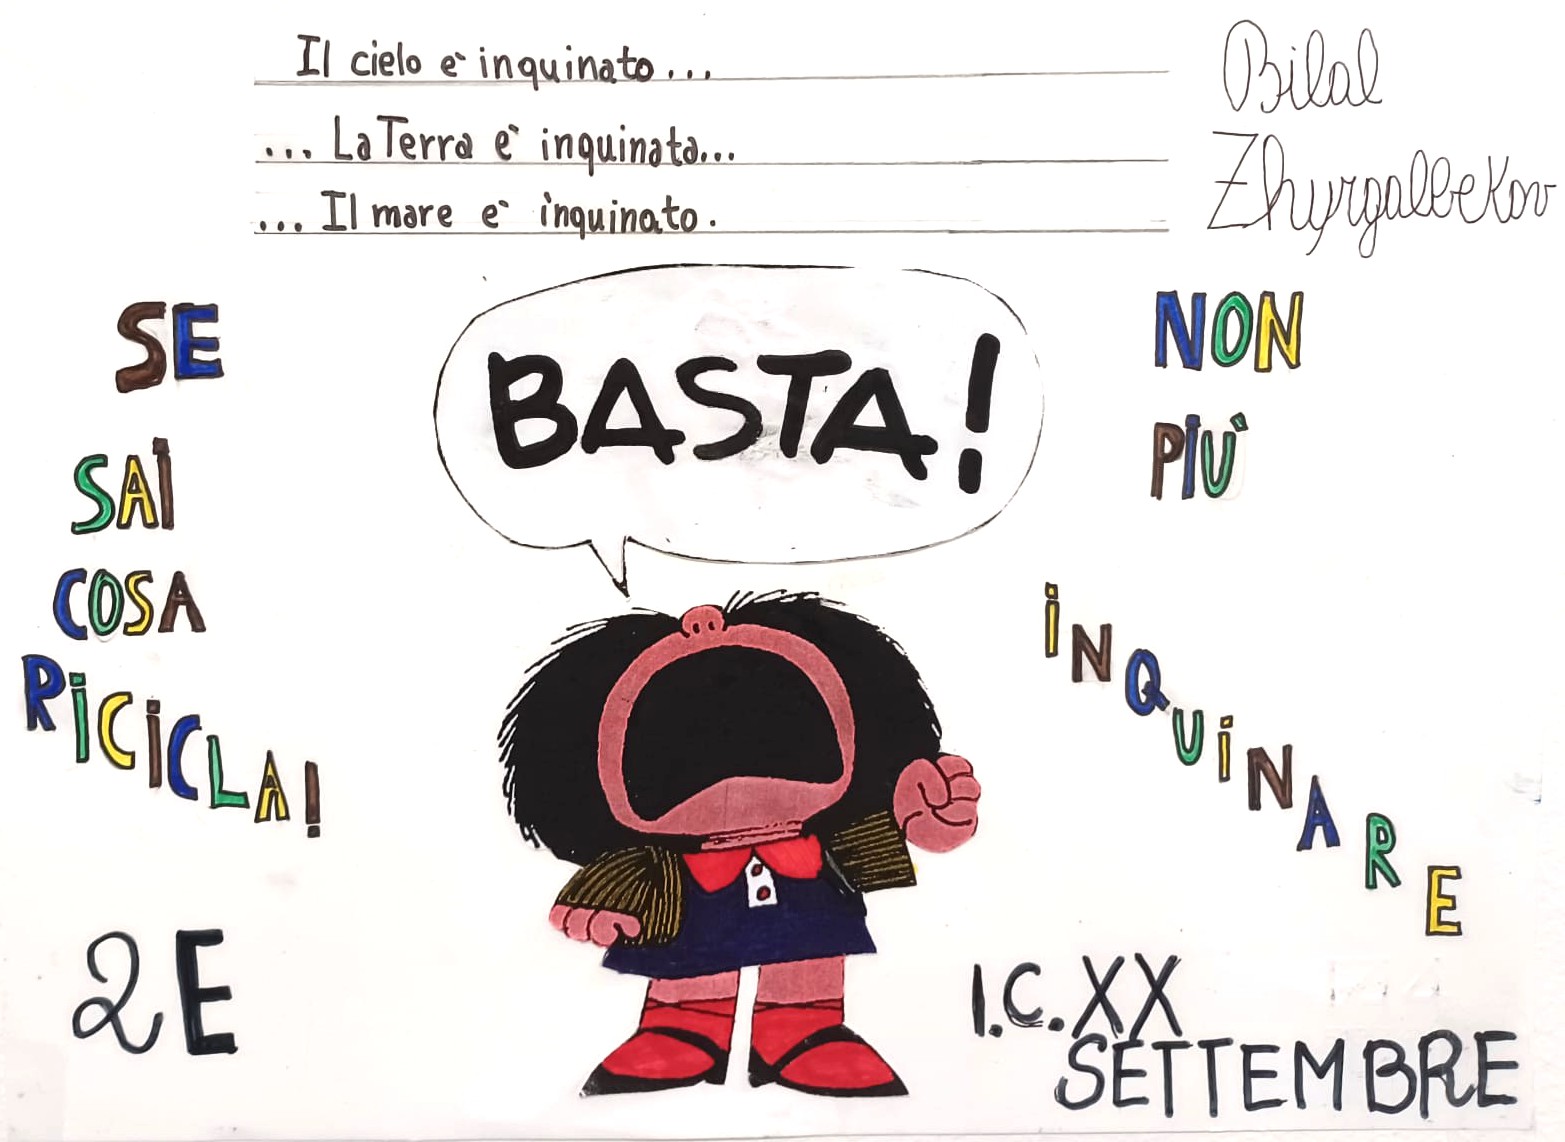 Il cielo è inquinato...
... La Terra è inquinata...
... Il mare è inquinato.
Bilal
Zhyrgalbekov
SE
SAI
COSA
RICICLA!
BASTA!
NON
PIÙ
INQUINARE
2E
I.C.XX
SETTEMBRE